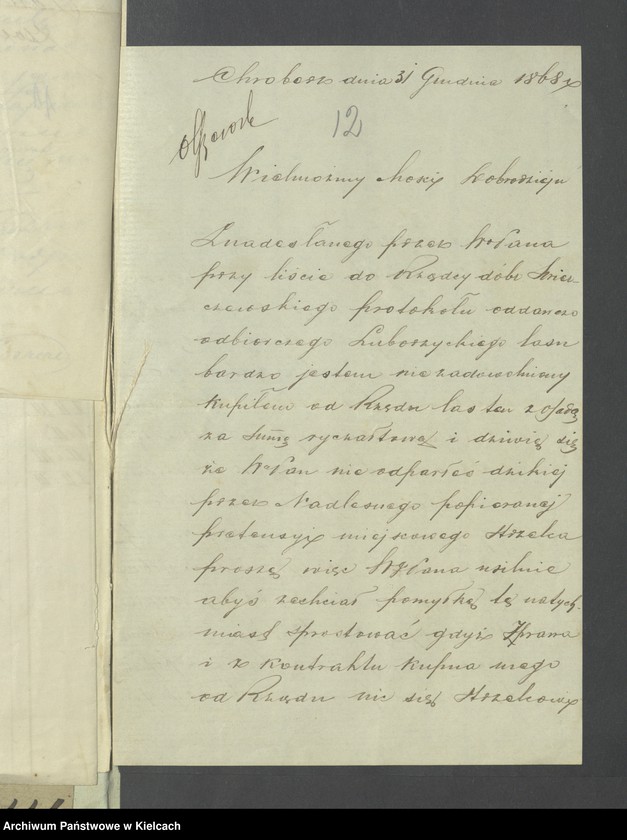 Chroberz dnia 31 Grudnia 1868 r
12
Wielmożny Mości Dobrodzieju
Z nadesłanego przez WoPana
przy liście do Rządcy dóbr Świer-
czewskiego protokołu oddawczo
odbiorczego Luboszyckiego lasu
bardzo jestem niezadowolniony
kupiłem od Rządu las ten z osadą
za summę ryczałtową i dziwię się
że WoPan nie odparłeś dzikiej
przez Nadleśnego popieranej
pretensyi miejscowego Strzelca
proszę więc WoPana usilnie
abyś zechciał pomyłkę tę natych-
miast sprostować gdyż z prawa
i z kontraktu kupna mego
od Rządu nic się Strzelcowi
Archiwum Państwowe w Kielcach